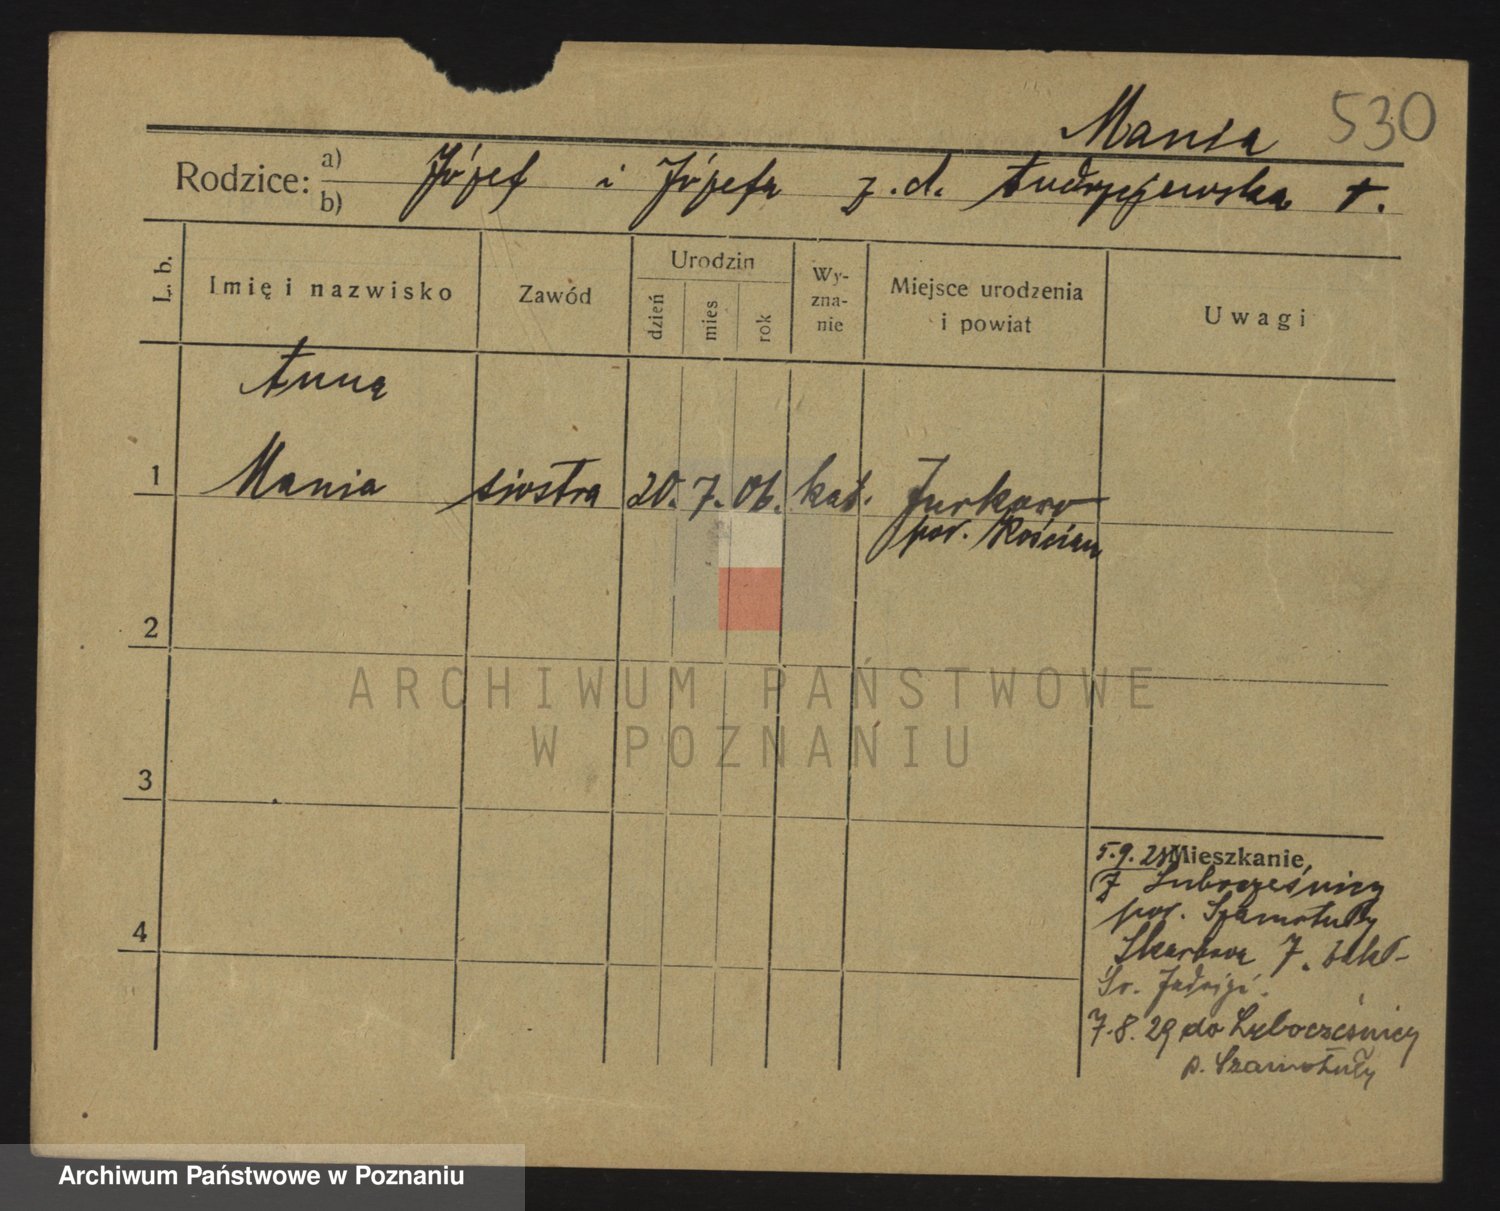 Mania 530
Rodzice: a) b) Józef i Józefa z. d. Andrzejewska †.
L. b. Imię i nazwisko Zawód Urodzin dzień mies rok Wy-zna-nie Miejsce urodzenia i powiat Uwagi
Anna
1 Mania siostra 20. 7. 06. kat. Jurkowo
pow. Kościan
2
ARCHIWUM PAŃSTWOWE
W POZNANIU
3
5.9.28 Mieszkanie
Z Lubocześnicy
pow. Szamotuły
4
Skarbowa 7. zakł.
Sr. Jadwigi.
7.8.29 do Lubocześnicy
p. Szamotuły
Archiwum Państwowe w Poznaniu